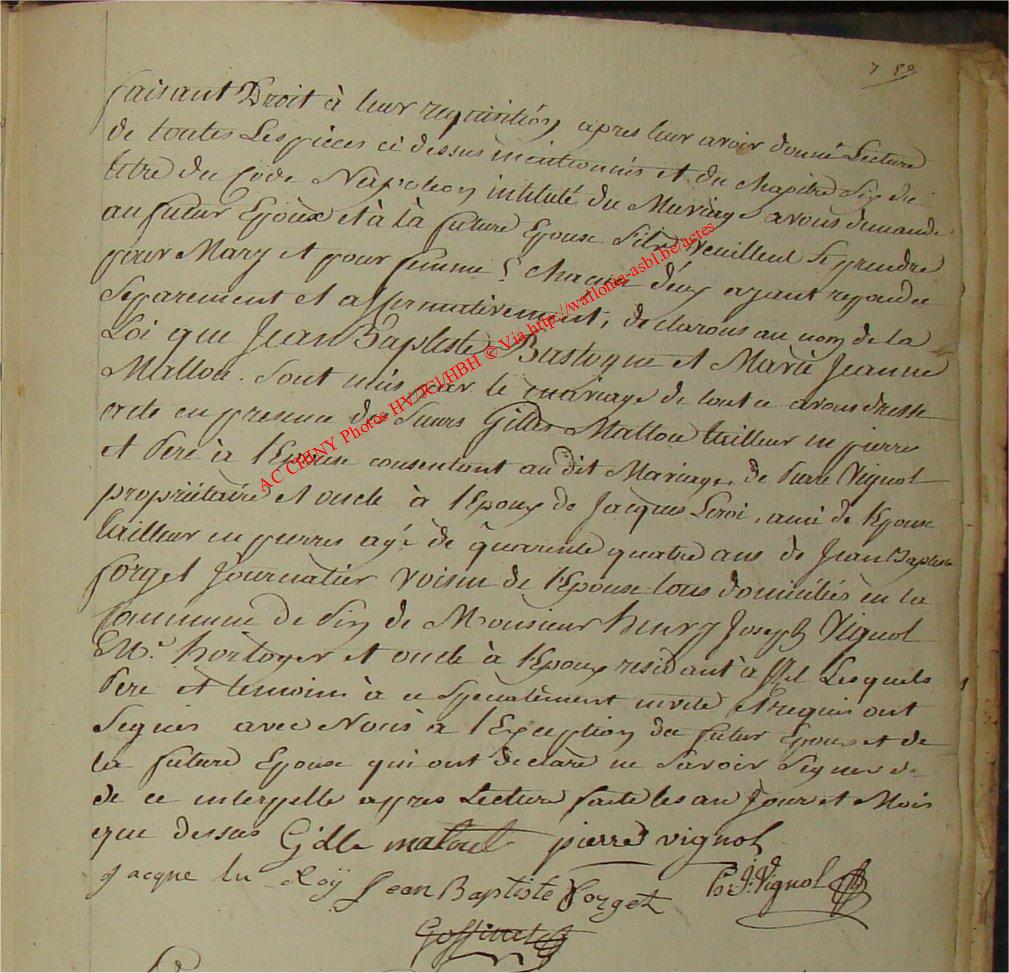 faisant Droit à leur requisition apres leur avoir donné Lecture
de toutes Les pièces ci dessus mentionnés et du chapitre Six du
titre du Code Napoleon intitulé du Mariage avons demandé
au futur Epoux et à là future Epouse Sils Veuillent Se prendre
pour Mary et pour femme, chacun d'eux ayant repondu
Séparement et affirmativement, declarons au nom de la
Loi que Jean Baptiste Bastogne et Marie Jeanne
Mallou. Sont unis par le mariage de tout ce avons dressé
acte en presence de Sieurs Gilles Mallou tailleur en pierres
et Pere à l'Epouse consentant au dit Mariage, de Pierre Vignol
propriétaire et oncle à l'Epoux de Jacques Leroi, ami de l'Epouse
tailleur en pierres agé de quarente quatre ans de Jean Baptiste
forget Journalier Voisin de l'Epouse tous domiciliés en la
Commune de de Monsieur henry Joseph Vignol
horloger et oncle à l'Epoux residant à Les quels
Pere et temoins à ce Specialement invité et requis ont
Segnés avec Nous à l'Exception du futur Epoux et de
la future Epouse qui ont declaré ne Savoir Signer de
de ce interpellé apres Lecture faite les an Jour et Mois
que dessus Gille malout pierre vignol
Jacque lu Roÿ Jean Baptiste Forget h: J: Vignol
AC CHINY Photos HV/JCl/HBH © Via http://wallonia-asbl.be/actes